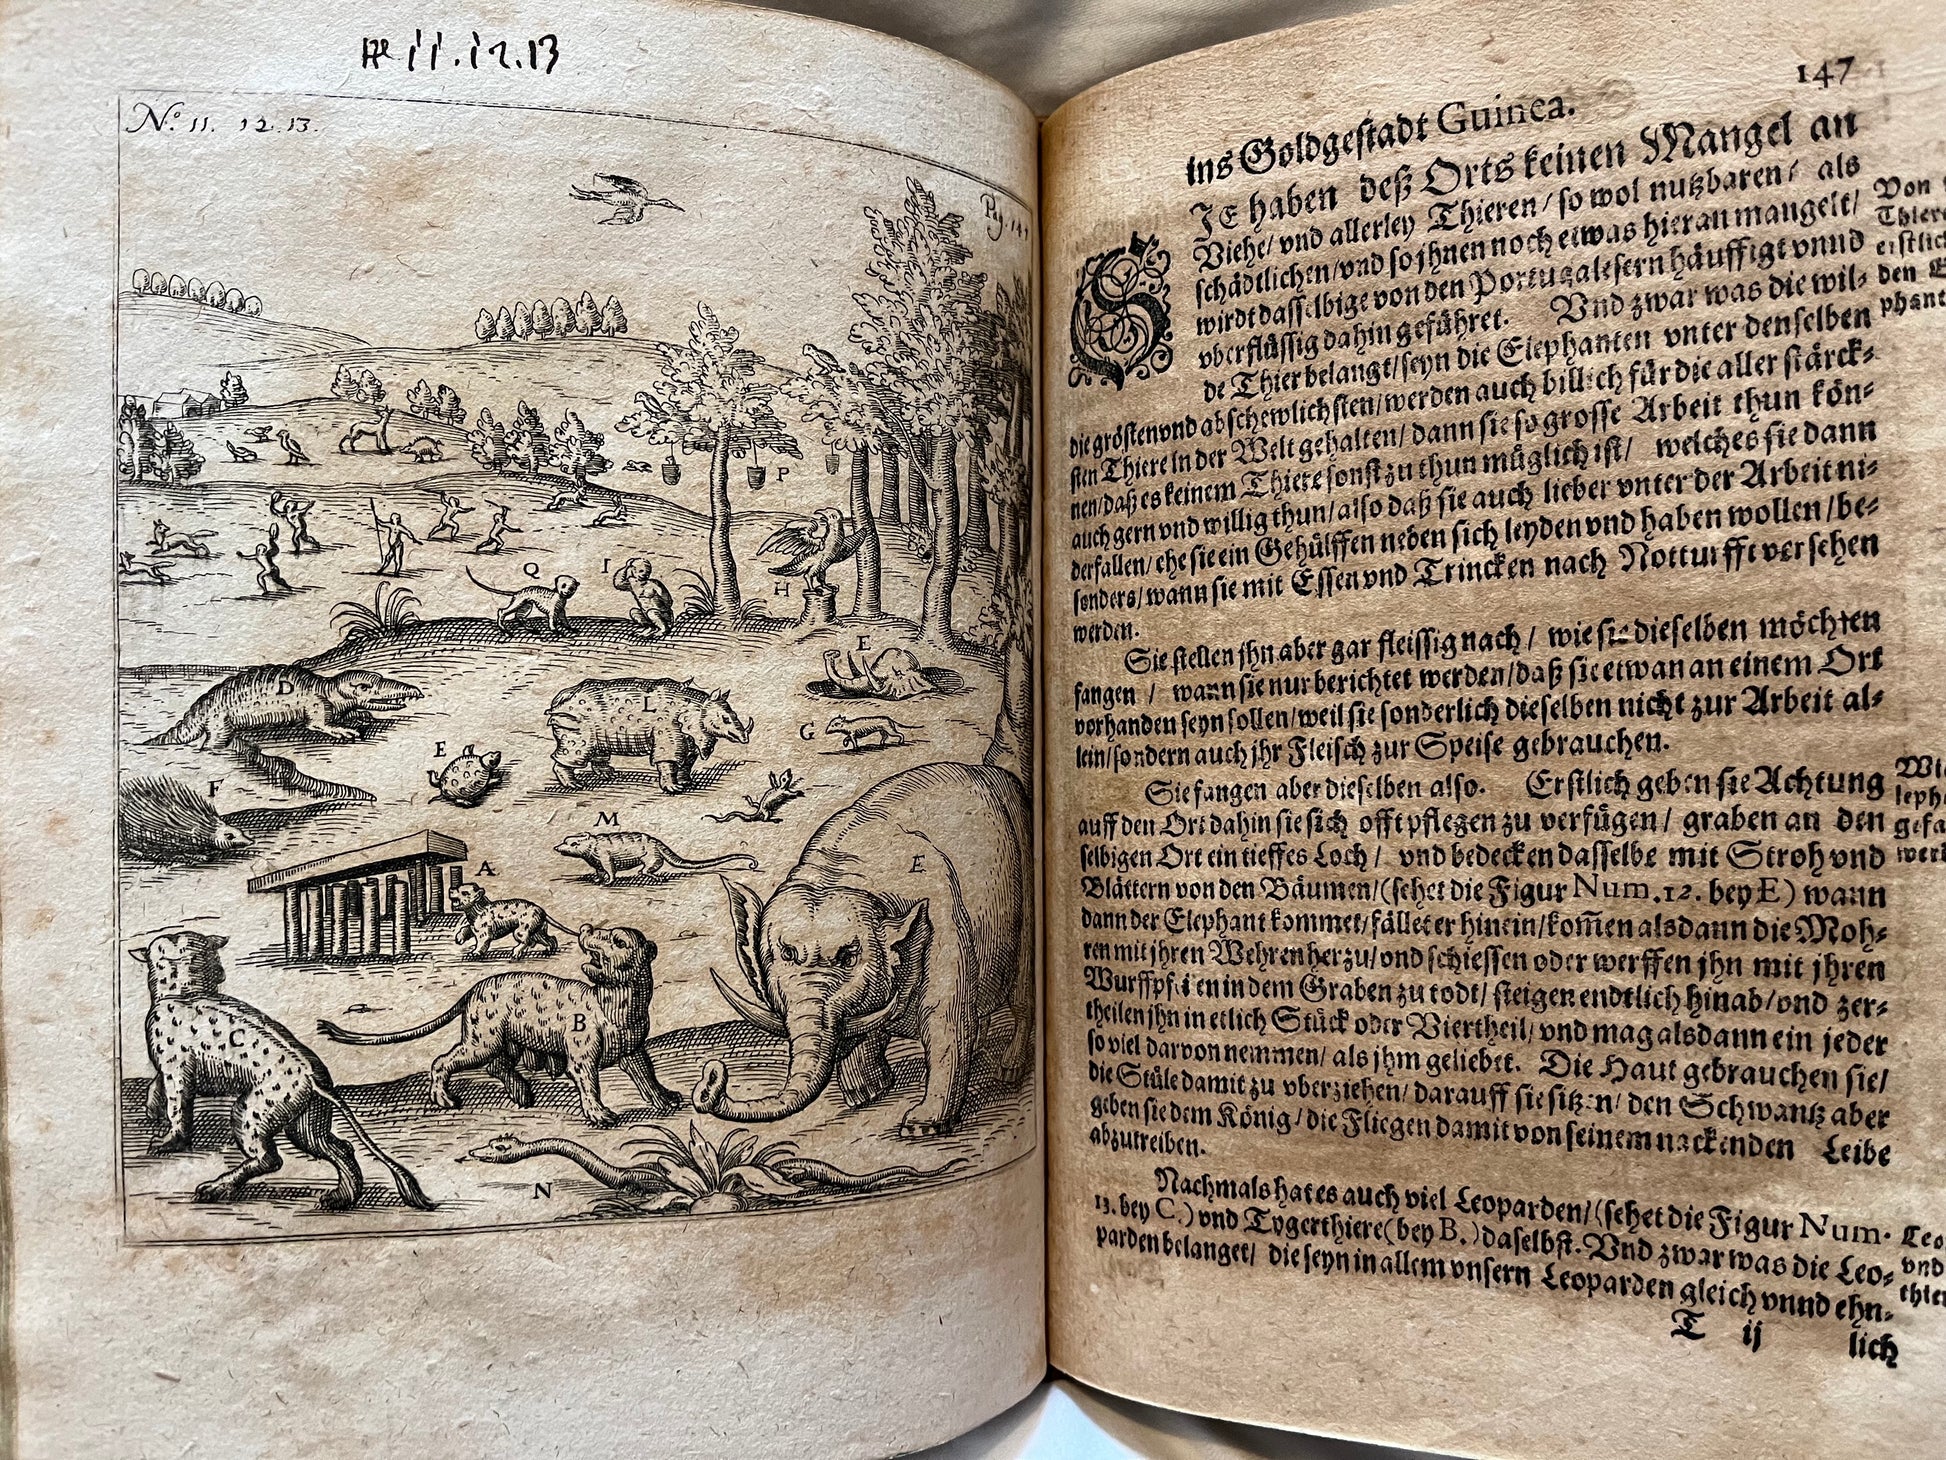 11.12.13
No. 11. 12.13.
Pag. 147
P
Q
I
H
E
D
L
G
E
F
M
A
E
C
B
N
147
ins Goldgestadt Guinea.
SIE haben deß Orts keinen Mangel an
Viehe/ vnd allerley Thieren/ so wol nutzbaren/ als
schädtlichen/ vnd so jhnen noch etwas hieran mangelt/
wirdt dasselbige von den Portugalesern häuffig vnnd
vberflüssig dahin geführet. Vnd zwar was die wil-
de Thier belangt/ seyn die Elephanten vnter denselben
die grösten vnd abschewlichsten/ werden auch billich für die aller stärck-
sten Thiere in der Welt gehalten/ dann sie so grosse Arbeit thun kön-
nen/ daß es keinem Thiere sonst zu thun müglich ist/ welches sie dann
auch gern vnd willig thun/ also daß sie auch lieber vnter der Arbeit ni-
derfallen/ ehe sie ein Gehülffen neben sich leyden vnd haben wollen/ be-
sonders/ wann sie mit Essen vnd Trincken nach Notturfft versehen
werden.
Sie stellen jhn aber gar fleissig nach/ wie sie dieselben möchten
fangen/ wann sie nur berichtet werden/ daß sie etwan an einem Ort
vorhanden seyn sollen/ weil sie sonderlich dieselben nicht zur Arbeit al-
lein/ sondern auch jhr Fleisch zur Speise gebrauchen.
Sie fangen aber dieselben also. Erstlich geben sie Achtung
auff den Ort dahin sie sich offt pflegen zu verfügen/ graben an den
selbigen Ort ein tieffes Loch/ vnd bedecken dasselbe mit Stroh vnd
Blättern von den Bäumen/ (sehet die Figur Num. 12. bey E) wann
dann der Elephant kommet/ fället er hinein/ kom̃en alsdann die Moh-
ren mit jhren Wehren herzu/ vnd schiessen oder werffen jhn mit jhren
Wurffpfeilen in dem Graben zu todt/ steigen endtlich hinab/ vnd zer-
theilen jhn in etlich Stück oder Viertheil/ vnd mag alsdann ein jeder
so viel darvon nemmen/ als jhm geliebet. Die Haut gebrauchen sie/
die Stüle damit zu vberziehen/ darauff sie sitzen/ den Schwantz aber
geben sie dem König/ die Fliegen damit von seinem nackenden Leibe
abzutreiben.
Nachmals hat es auch viel Leoparden/ (sehet die Figur Num.
13. bey C.) vnd Tygerthiere (bey B.) daselbst. Vnd zwar was die Leo-
parden belanget/ die seyn in allem vnsern Leoparden gleich vnnd ehn-
T ij lich
Von
Thiere
den E
phant
Wie
gefa
werd
Leo
vnd
thier